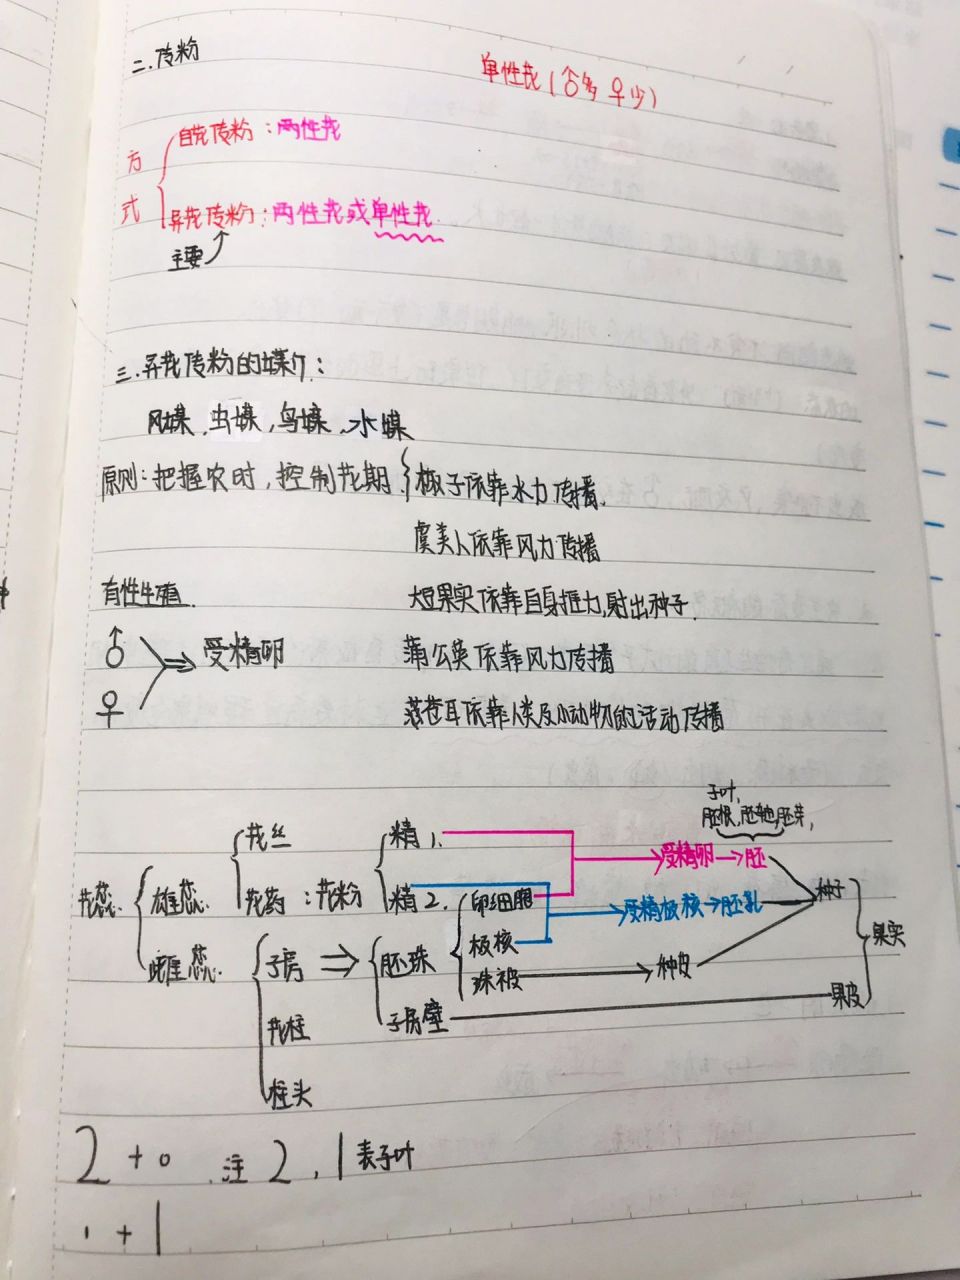 二.传粉
单性花(♂多 ♀少)
方式
自花传粉:两性花
异花传粉:两性花或单性花.
主要
三.异花传粉的媒介:
风媒、虫媒、鸟媒、水媒
原则:把握农时,控制花期.
椒子依靠水力传播.
虞美人依靠风力传播
有性生殖.
大豆果实依靠自身推力,射出种子.
♂ ♀ ⇒ 受精卵
蒲公英依靠风力传播
苍耳依靠人类及小动物的活动传播
子叶,
胚根,胚轴,胚芽,
花丝
精1.
受精卵→胚
花蕊.
雄蕊.
花药:花粉
精2.
卵细胞
受精极核→胚乳
种子
果实
极核
雌蕊.
子房
胚珠
珠被
种皮
果皮
花柱
子房壁
柱头
2+0 .注 2,1表子叶
1+1